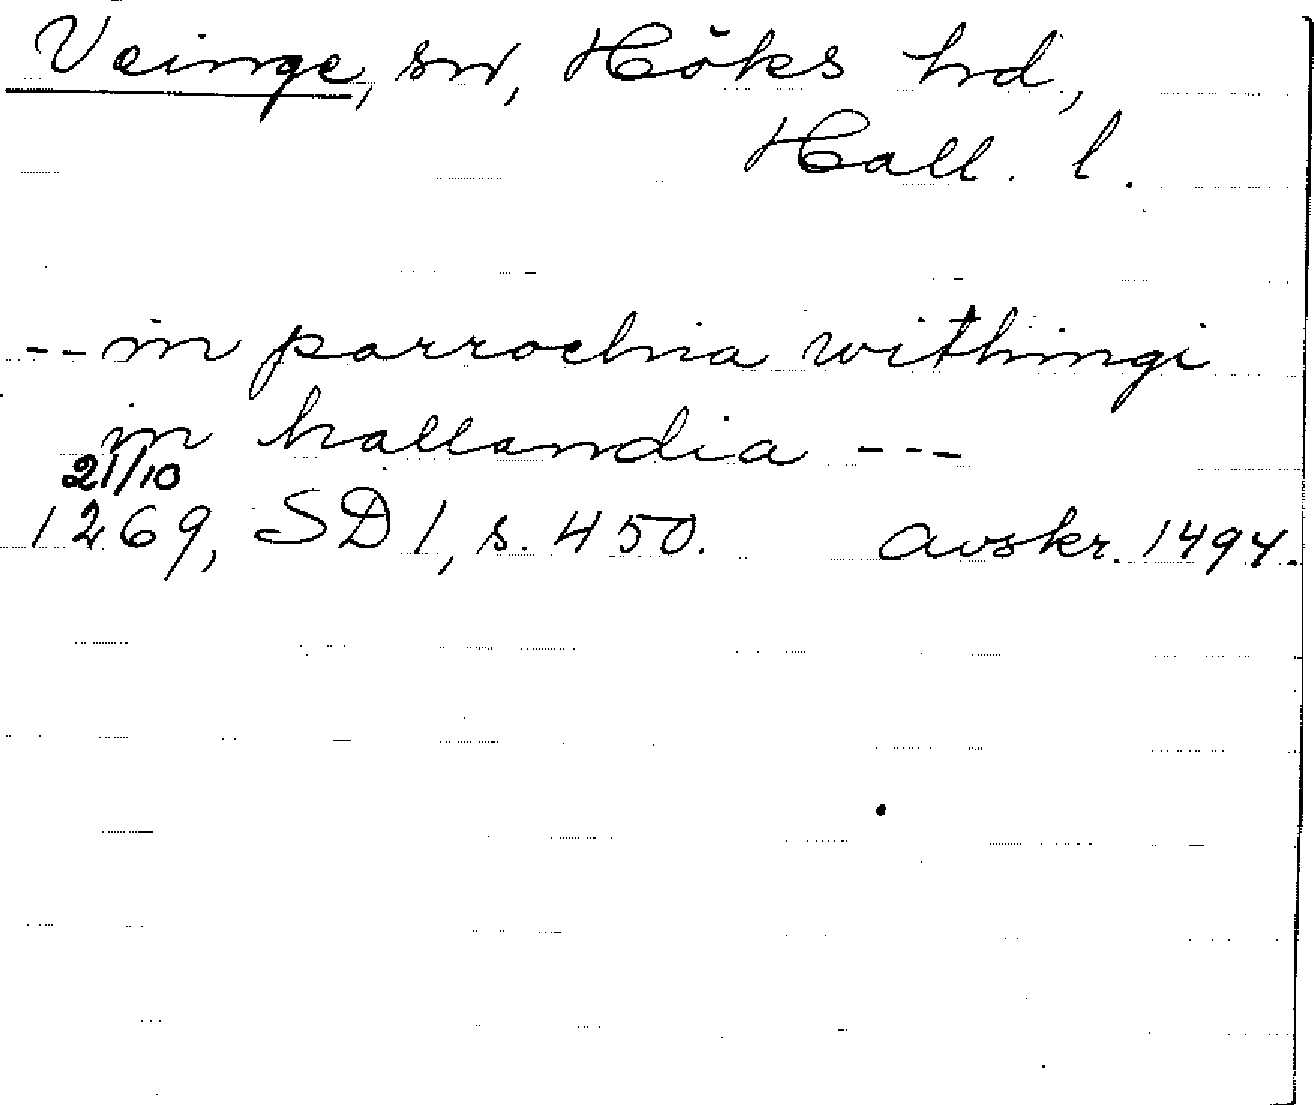 Veinge, sn, Höks hd,
Hall. l.
-- in parrochia withingi
in hallandia ---
21/10
1269, SD 1, s. 450. avskr. 1494.